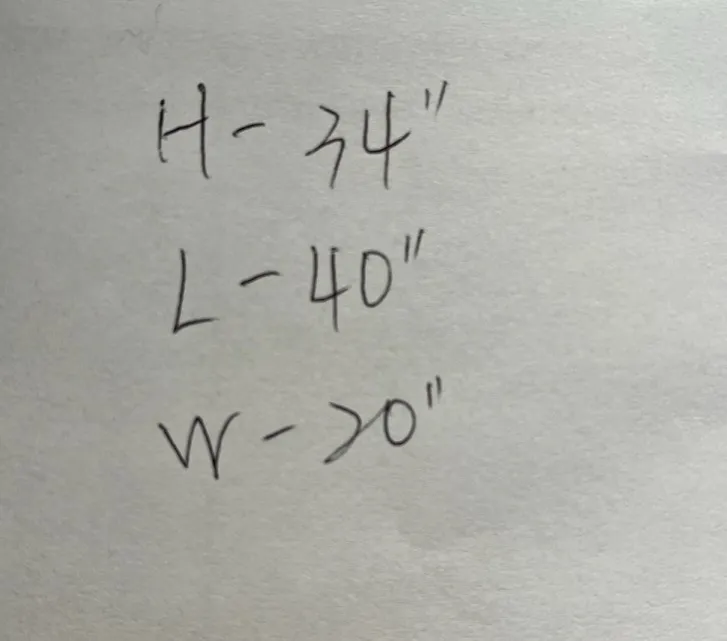 H - 34"
L - 40"
W - 20"